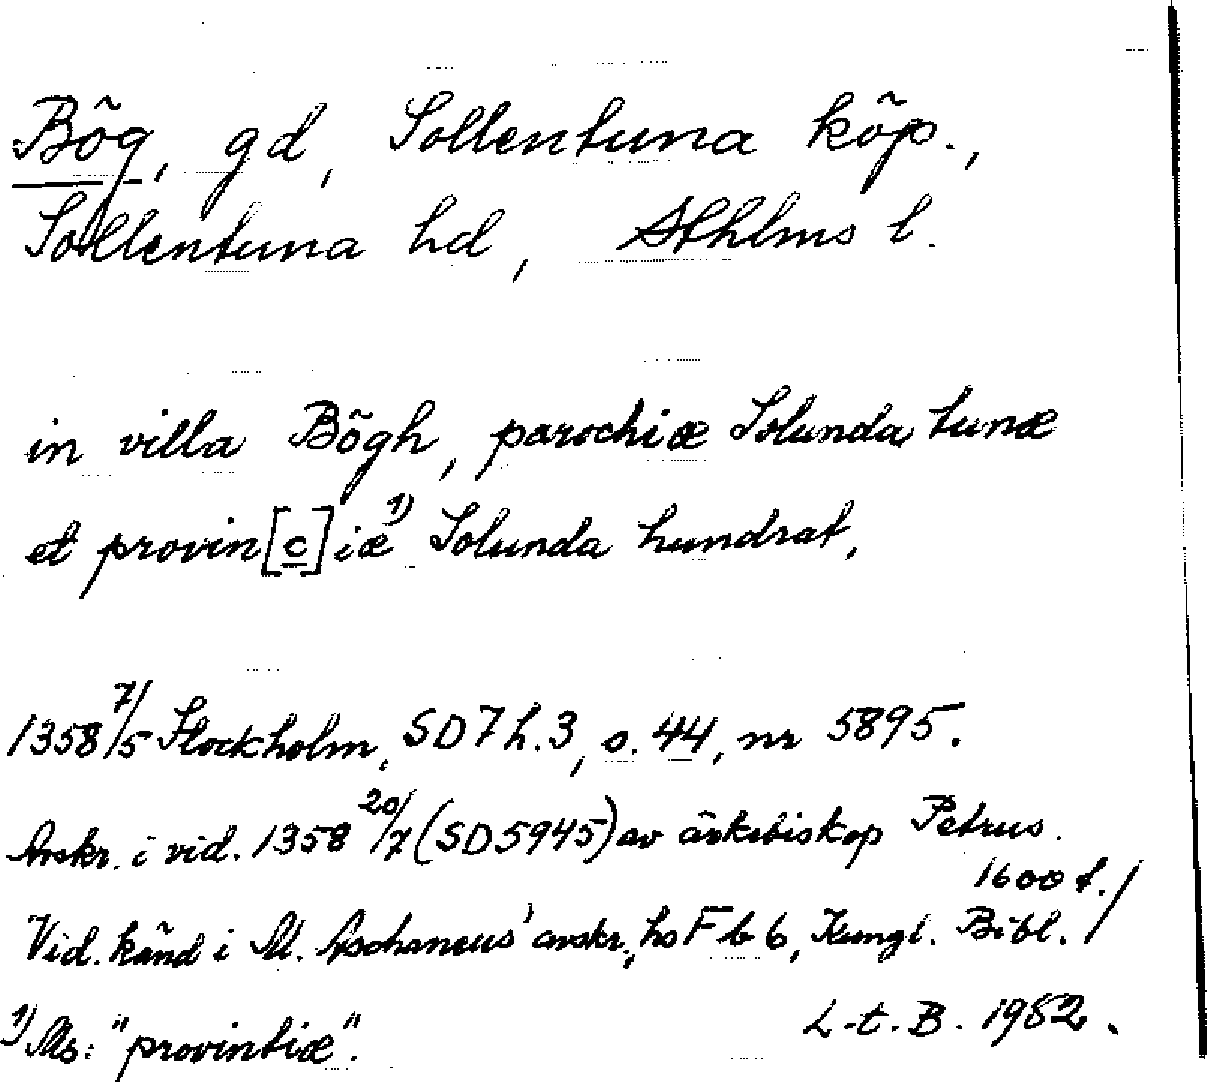 Bög, gd, Sollentuna köp.,
Sollentuna hd, Sthlms l.
in villa Bögh, parochiæ Solunda tunæ
et provin[c]iæ¹⁾ Solunda hundrat,
1358 7/5 Stockholm, SD 7 h. 3, s. 44, nr 5895.
Avskr. i vid. 1358 20/7 (SD 5945) av ärkebiskop Petrus.
Vid. känd i M. Aschaneus' avskr., hs F b 6, Kungl. Bibl. /
1600 t. /
¹⁾ Ms: "provintiæ".
L-t. B. 1982.